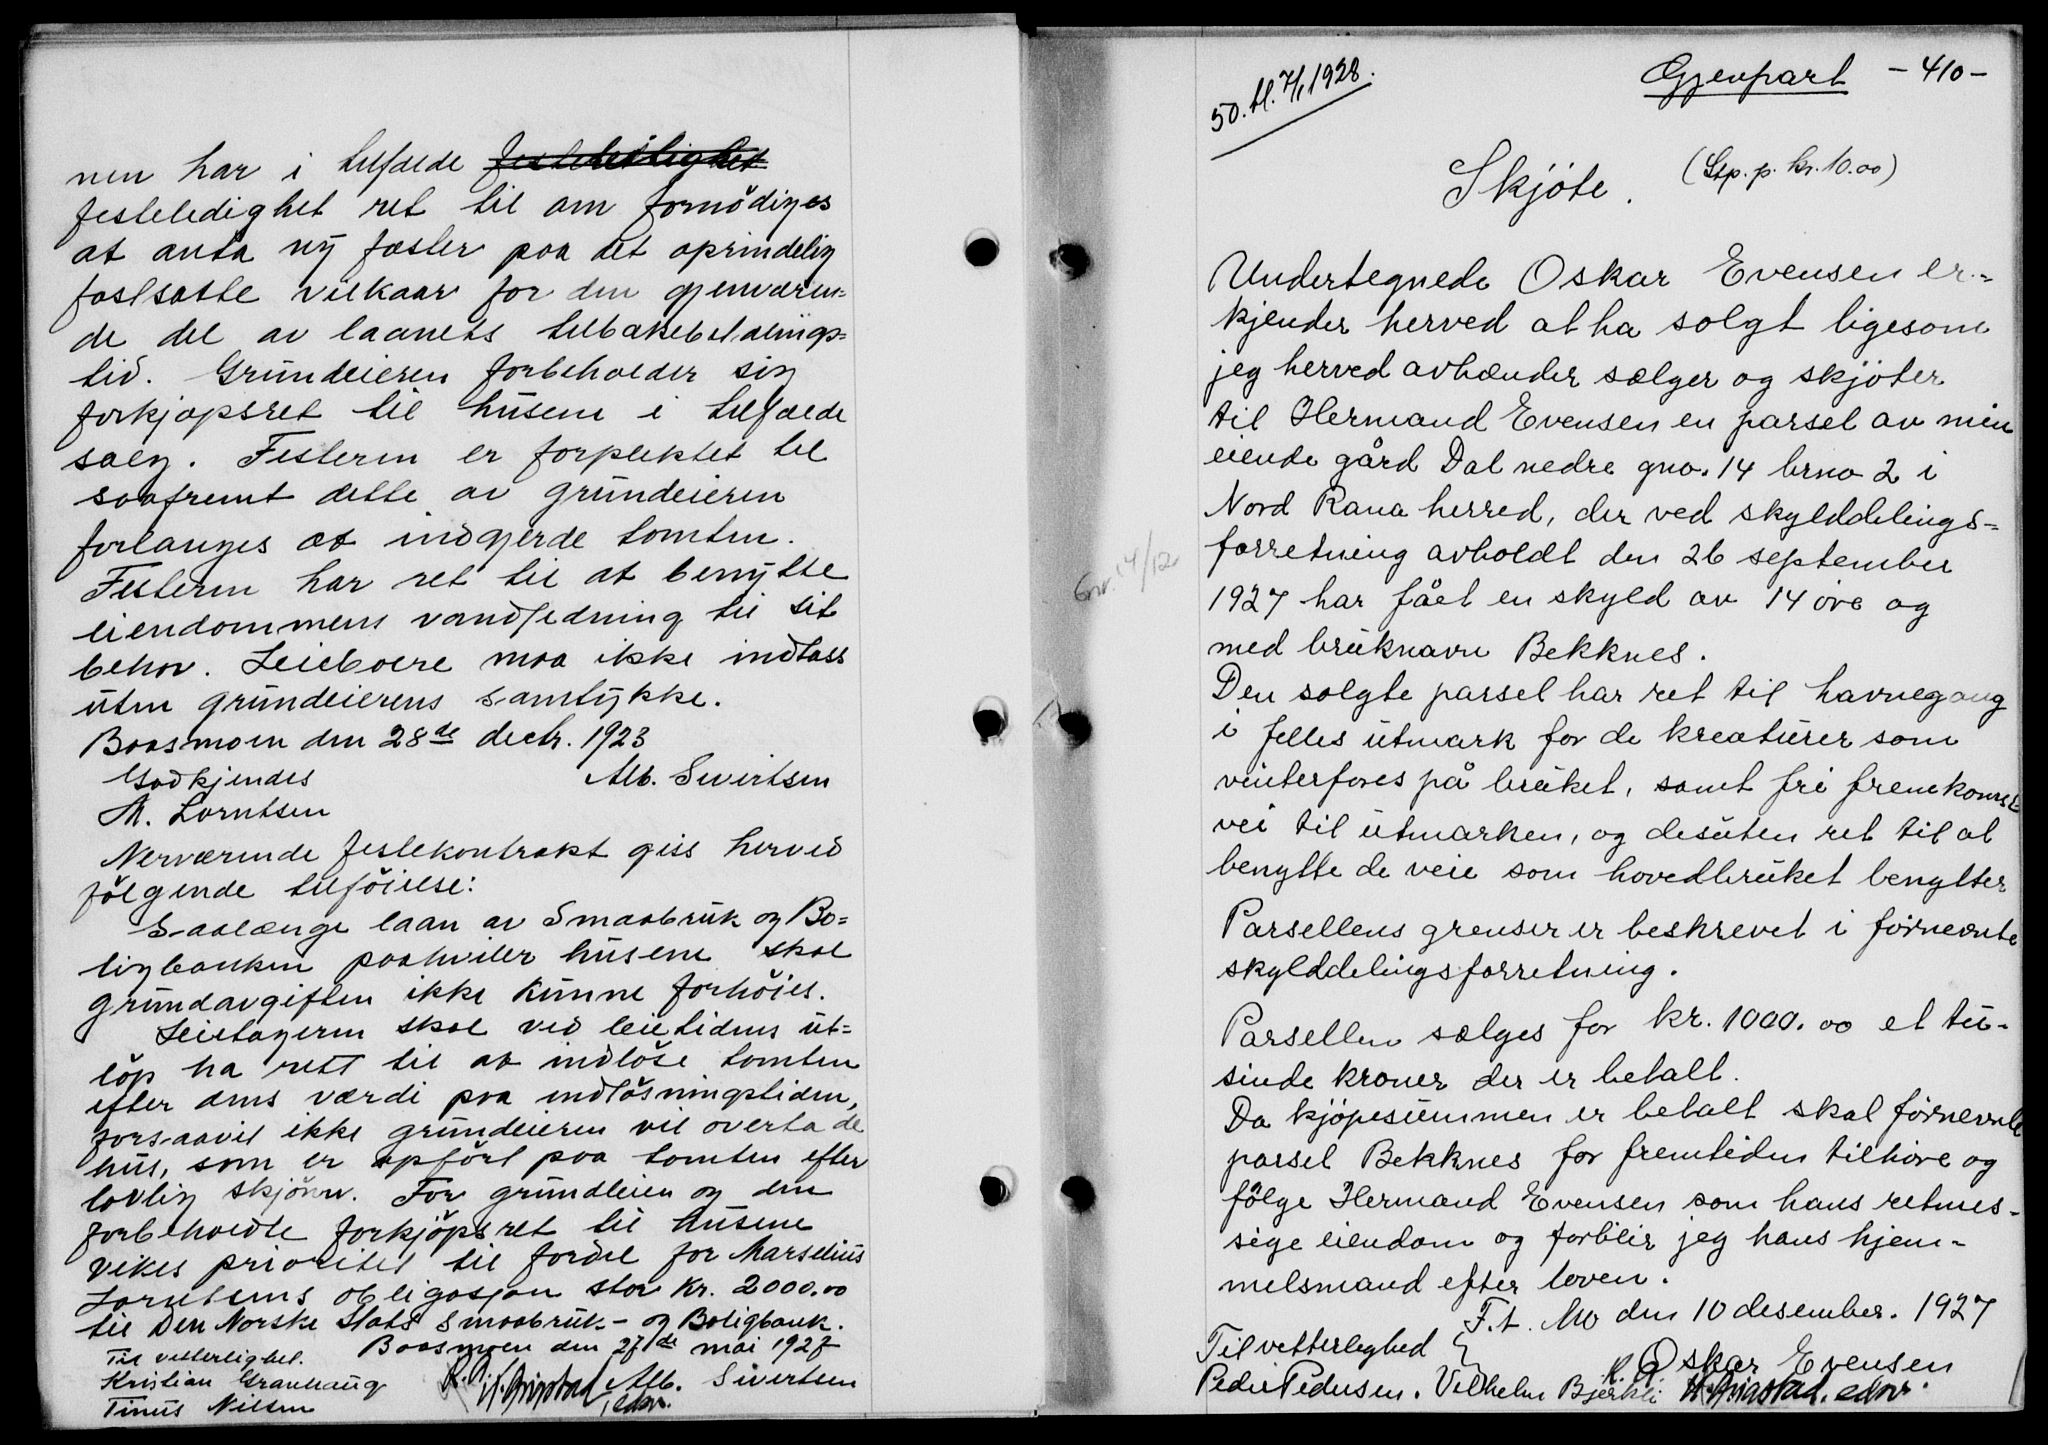 nen har i tilfælde festeledighet
festeledighet ret til om fornødiges
at anta ny fæster paa det oprindelig
fastsatte vilkaar for den gjenværen=
de del av laanets tilbakebetalings=
tid. Grundeieren forbeholder sig
forkjøpsret til husene i tilfælde
salg. Festeren er forpliktet til
saafremt dette av grundeieren
forlanges at indgjerde tomten.
Festeren har ret til at benytte
eiendommens vandledning til sit
behov. Leieboere maa ikke indtass
uten grundeierens samtykke.
Baasmoen den 28de decbr. 1923
Godkjendes Alb. Sivertsen
M. Lorntsen
Nerværende festekontrakt giss herved
følgende tilføielse:
Saalænge laan av Smaabruk og Bo=
ligbanken paahviler husene skal
grundavgiften ikke kunne forhøies.
Leietageren skal ved leietidens ut=
løp ha rett til at indløse tomten
efter dens værdi paa indløsningstiden,
forsaavit ikke grundeieren vil overta de
hus, som er opført paa tomten efter
lovlig skjønn. For grundleien og den
forbeholdte forkjøpsret til husene
vikes prioritet til fordel for Marselius
Lorntsens obligasjon stor kr. 2000.00
til Den Norske Stats Smaabruk- og Boligbank.
Baasmoen den 27de mai 1927
Til vitterlighet.
Kristian Granhaug Alb. Sivertsen
Tinus Nilsen
50. tl. 7/1 1928.
Gjenpart - 410 -
Skjøte. (Stp. p. kr. 10.00)
Undertegnede Oskar Evensen er=
kjender herved at ha solgt ligesom
jeg herved avhænder sælger og skjøter
til Hermand Evensen en parsel av min
eiende gård Dal nedre gno. 14 brno 2 i
Nord Rana herred, der ved skylddelings=
forretning avholdt den 26 september
Gnr. 14/12
1927 har fået en skyld av 14 øre og
med bruknavn Bekknes.
Den solgte parsel har ret til havnegang
i felles utmark for de kreaturer som
vinterfores på bruket, samt fri fremkomst
vei til utmarken, og desuten ret til at
benytte de veie som hovedbruket benytter
Parsellens grenser er beskrevet i førnevnte
skylddelingsforretning.
Parsellen sælges for kr. 1000.00 et tu-
sinde kroner der er betalt.
Da kjøpesummen er betalt skal førnevnte
parsel Bekknes for fremtiden tilhøre og
følge Hermand Evensen som hans retmes-
sige eiendom og forblir jeg hans hjem-
melsmand efter loven.
F.t. Mo den 10 desember. 1927
Til vetterleghed
Oskar Evensen
Peder Pedersen. Vilhelm Bjerkli